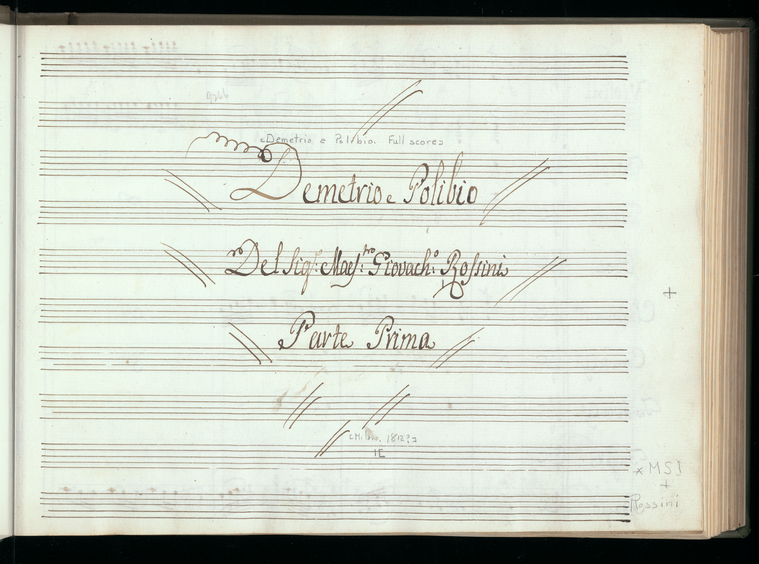 [Demetrio e Polibio. Full score]
Demetrio e Polibio
Del Sigr. Maestro Giovacho. Rossini
Parte Prima
1812?]
*MSI
+
Rossini
+